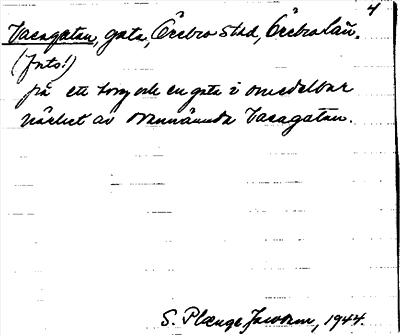 4
Vasagatan, gata, Örebro stad, Örebro län.
(Jnts!)
på ett torg och en gata i omedelbar
närhet av ovannämnda Vasagatan.
S. Plænge Jacobson, 1944.